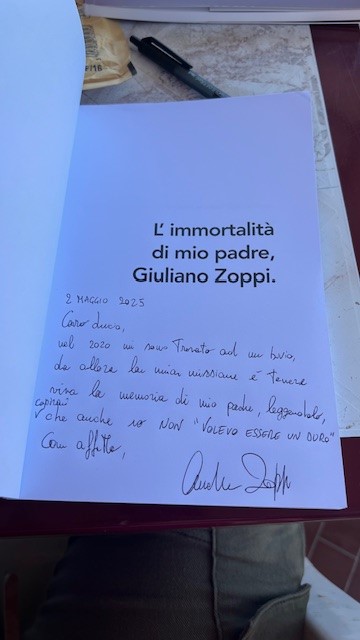 L' immortalità
di mio padre,
Giuliano Zoppi.
2 MAGGIO 2025
Caro Luca,
nel 2020 mi sono Trovato ad un bivio,
da allora la mia missione è tenere
viva la memoria di mio padre, leggendolo,
capirai
che anche io NON "VOLEVO ESSERE UN DURO"
Con affetto,
Zoppi